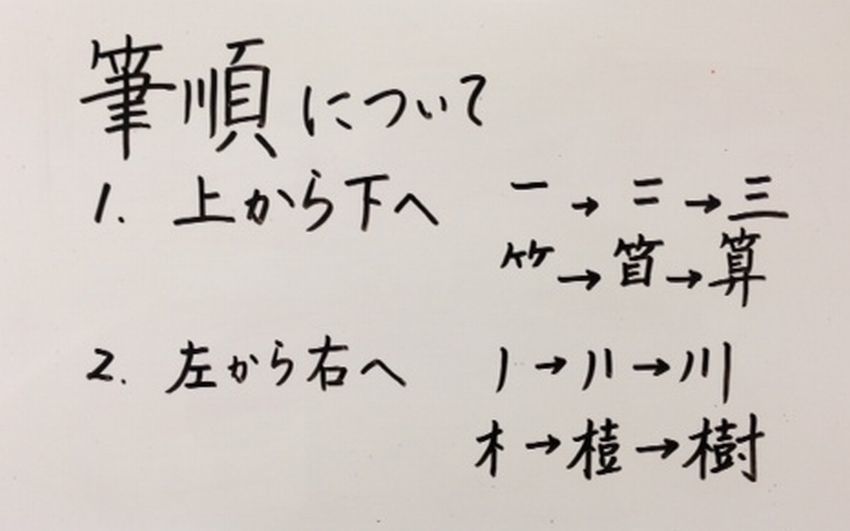 筆順について
1. 上から下へ 一→二→三
⺮→筫→算
2. 左から右へ 丿→丿丨→川
木→樻→樹